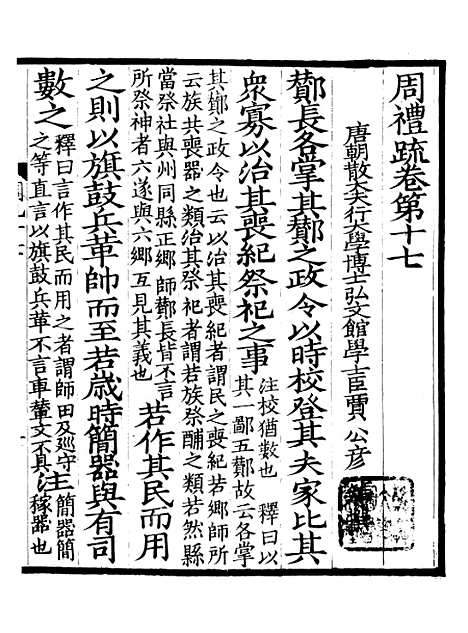 周禮疏卷第十七
唐朝散大夫行太學博士弘文館學士臣賈公彥
酇長各掌其酇之政令以時校登其夫家比其
衆寡以治其喪紀祭祀之事
注校猶數也 釋曰以
其一鄙五酇故云各掌
其酇之政令也云以治其喪紀者謂民之喪紀若鄉師所
云族共喪器之類治其祭祀者謂若族祭酺之類若然縣
當祭社與州同縣正鄉師酇長皆不言
所祭神者六遂與六鄉互見其義也
若作其民而用
之則以旗鼓兵革帥而至若歲時簡器與有司
數之
釋曰言作其民而用之者謂師田及廵守
之等直言以旗鼓兵革不言車輦文不具
注
簡器簡
稼器也